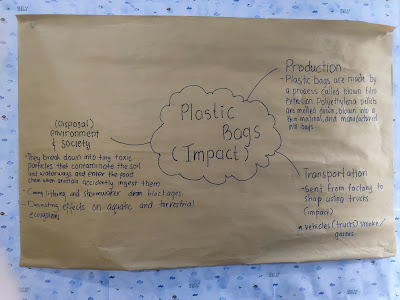 Production
- Plastic Bags are made by
a process called blown film
extrusion. Polyethylene pellets
are melted down, blown into a
thin material, and manufactured
into bags.
Plastic
Bags
(Impact)
(Disposal)
environment
& society
- They break down into tiny toxic
particles that contaminate the soil
and waterways and enter the food
chain when animals accidently ingest them.
littering, and stormwater drain blockages.
- Devastating effects on aquatic and terrestrial
ecosystems
Transportation
- Sent from factory to
shop using trucks
(impact)
vehicles (trucks) smoke/